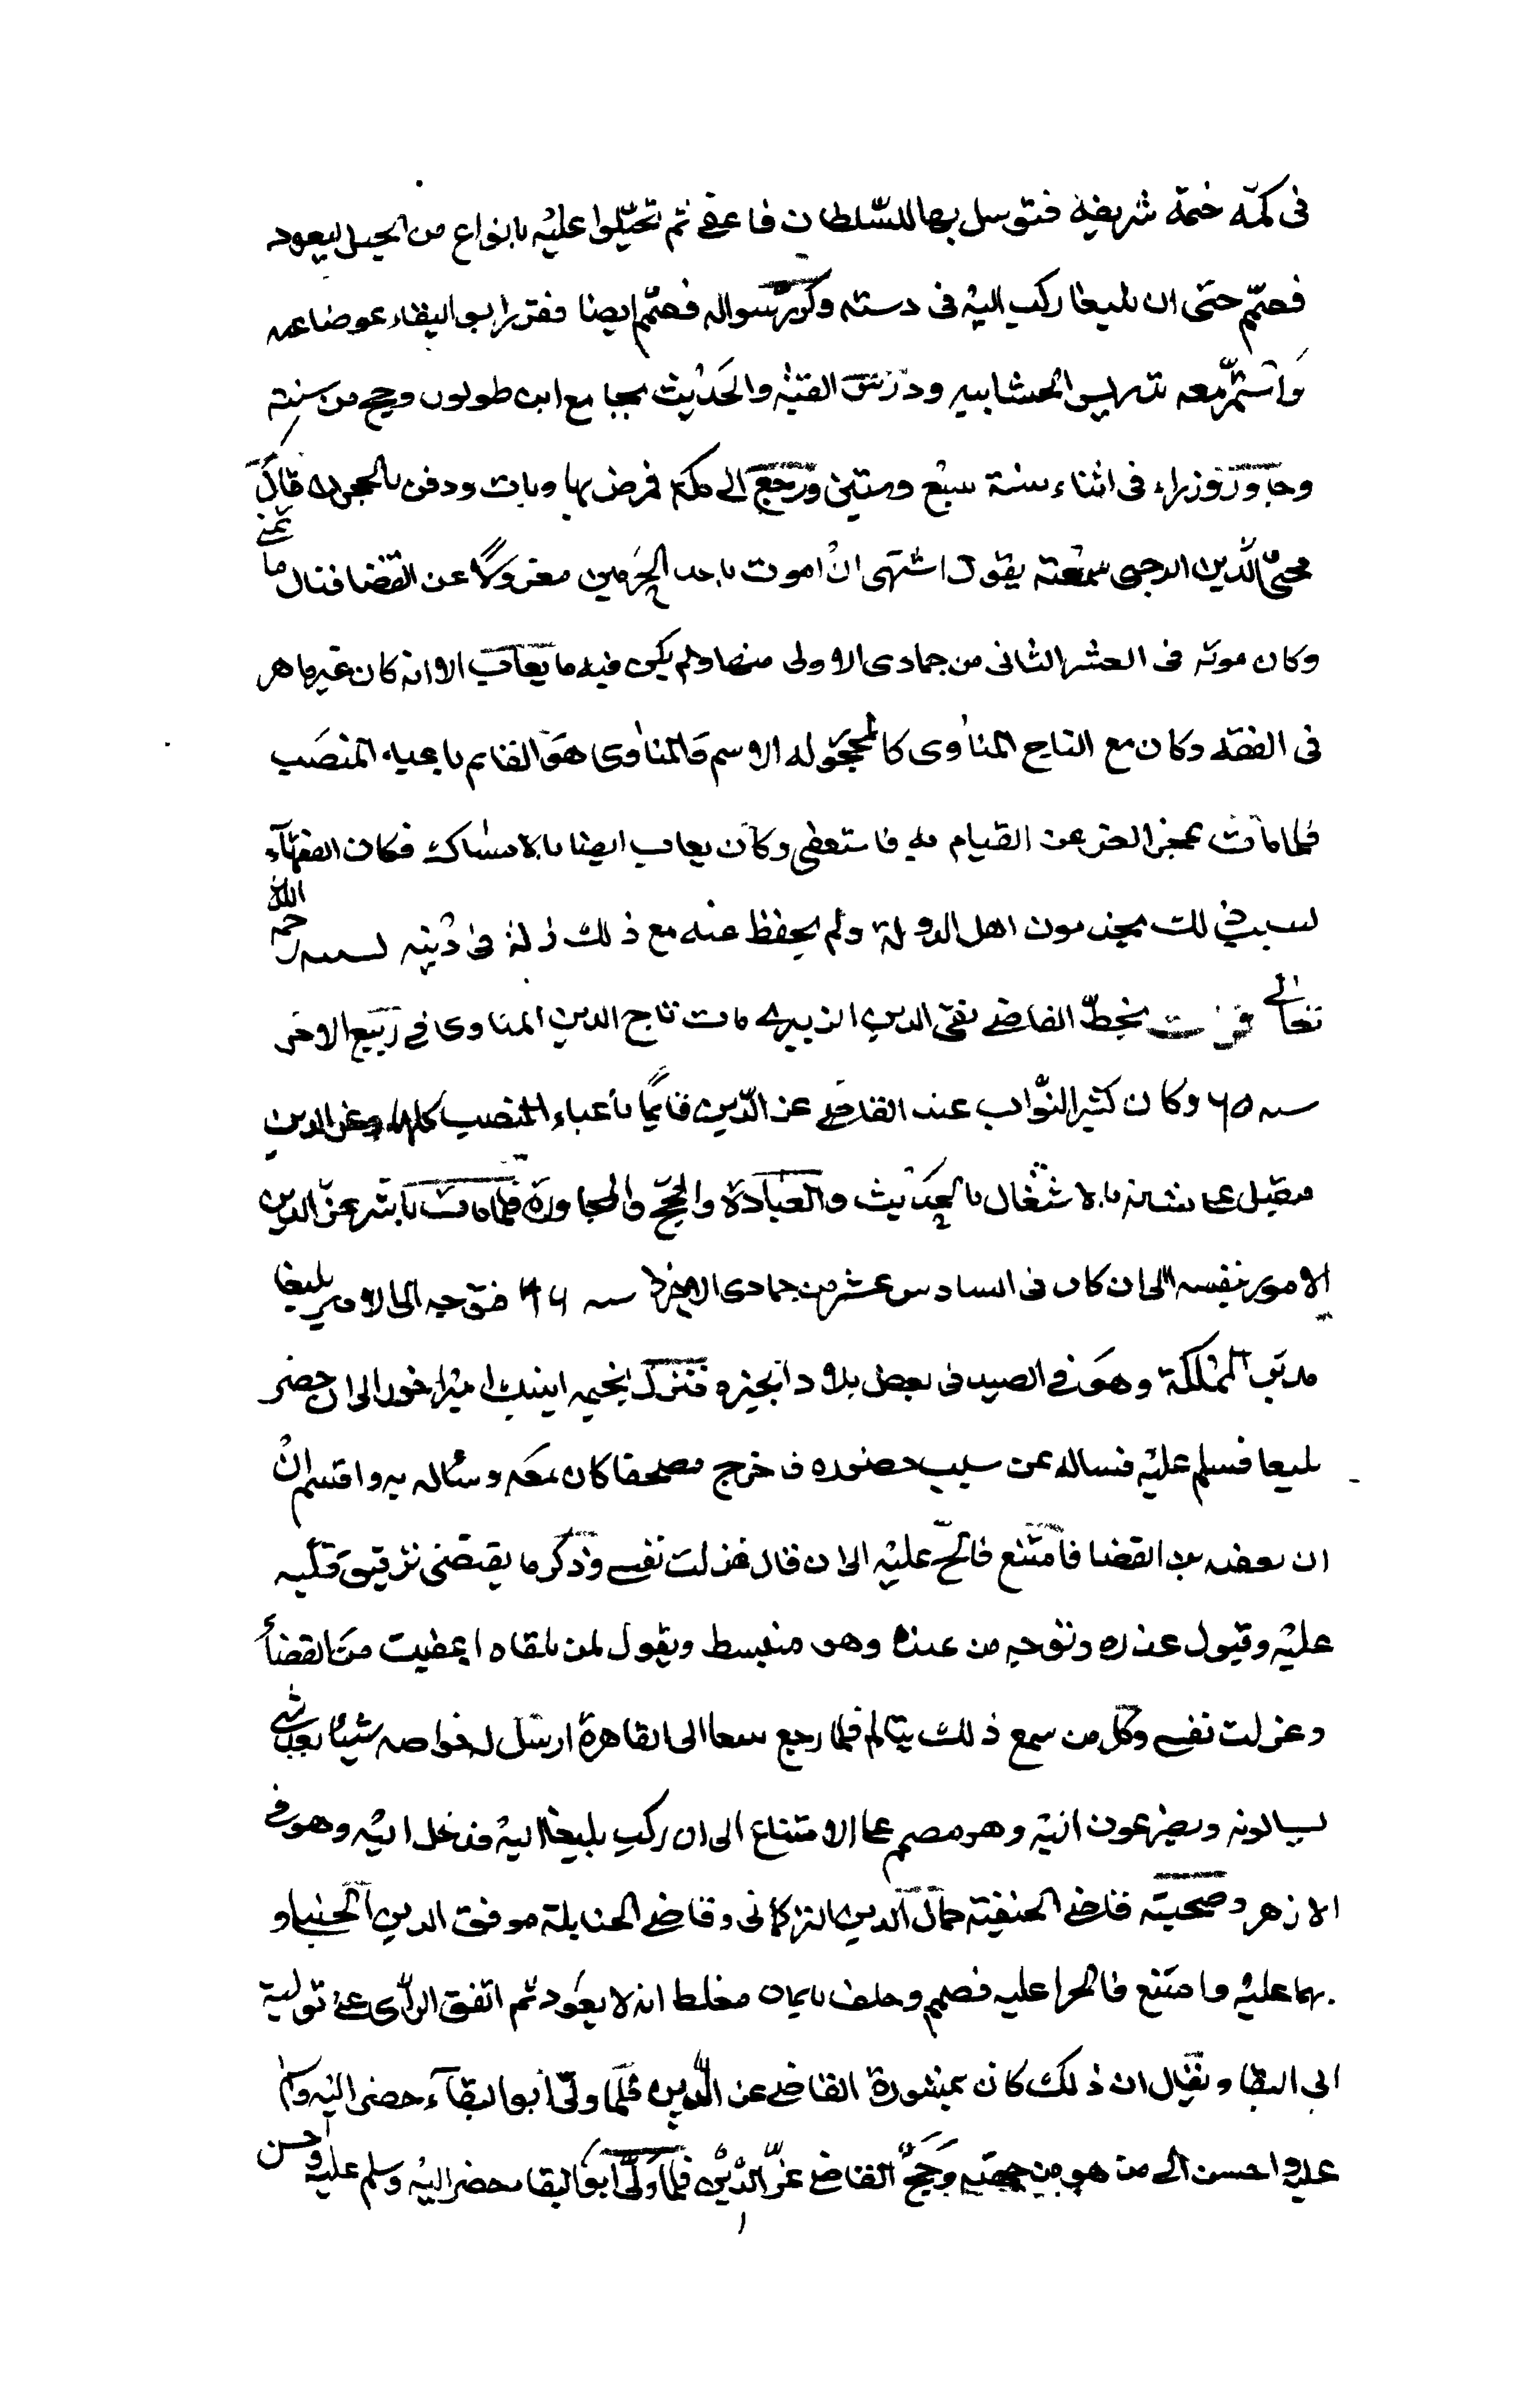 فى كمّه ختمة شريفة فتوسل بها للسّلطان فاعفى ثم تحيّلوا عليه بانواع من الحيل ليعود
فصمّم حتى ان يلبغا ركب اليه فى دسته وكرر سواله فصمّم ايضا فقرر ابو البقاء عوضا عنه
واستمرّ معه تدريس الخشابيه ودرس الفقه والحديث بجامع ابن طولون وحج من سنته
وجاور وزار فى اثناء سنة سبع وستين ورجع الى مكة فمرض بها ومات ودفن بالحجون قال
محيى الدين الرحبى سمعته يقول اشتهى ان اموت باحد الحرمين معزولا عن القضا فنال ما تمنى
وكان موته فى العشر الثانى من جمادى الاولى منها ولم يكن فيه ما يعاب الا انه كان غير ماهر
فى الفقه وكان مع التاج المناوى كالمحجور له الاسم والمناوى هو القايم باعباء المنصب
فلما مات عجز العز عن القيام به فاستعفى وكان يعاب ايضا بالامساك فكان الفقهاء
لسبب ذلك يخدمون اهل الدولة ولم يحفظ عنه مع ذلك زلة فى دينه رحمه الله
تعالى قرات بخطّ القاضى تقى الدين الزبيرى مات تاج الدين المناوى فى ربيع الاخر
سنه ٦٥ وكان كثير النّواب عند القاضى عز الدّين قايمًا باعباء المنصب كلها وعز الدين
مقبل على شانه بالاشتغال بالحديث والعبادة والحجّ والمجاورة فلما مات باشر عز الدين
الامور بنفسه الى ان كان فى السادس عشر من جمادى الاخرة سنه ٦٦ فتوجه الى الامير يلبغا
مدبر المملكة وهو فى الصيد فى بعض بلاد الجيزه فنزل بخيمه اينبك اميراخور الى ان حضر
يلبغا فسلم عليه فساله عن سبب حضوره فاخرج مصحفا كان معه وساله به واقسم ان
ان يعفيه من القضا فامتنع فالحّ عليه الى ان قال عزلت نفسى وذكر ما يقتضى ترقيق قلبه
عليه وقبول عذره وتوجه من عنده وهو منبسط ويقول لمن يلقاه اعفيت من القضاء
وعزلت نفسى وكل من سمع ذلك يتالم فلما رجع يلبغا الى القاهرة ارسل له خواصه شيئا بعد شى
يسالونه ويضرعون اليه وهو مصمم على الامتناع الى ان ركب يلبغا اليه فدخل اليه وهو فى
الازهر وصحبته قاضى الحنفية جمال الدين التركمانى وقاضى الحنابلة موفق الدين الحنبلى و
بهما عليه وامتنع فالحوا عليه فصمم وحلف بايمان مغلظا انه لا يعود ثم اتفق الراى على تولية
ابى البقا ويقال ان ذلك كان بمشورة القاضى عز الدين فلما ولّى ابو البقاء حضر اليه وسلم
عليه واحسن الى من هو من جهته وحج القاضى عز الدين فلما ولى ابو البقا حضر اليه وسلم عليه واحسن